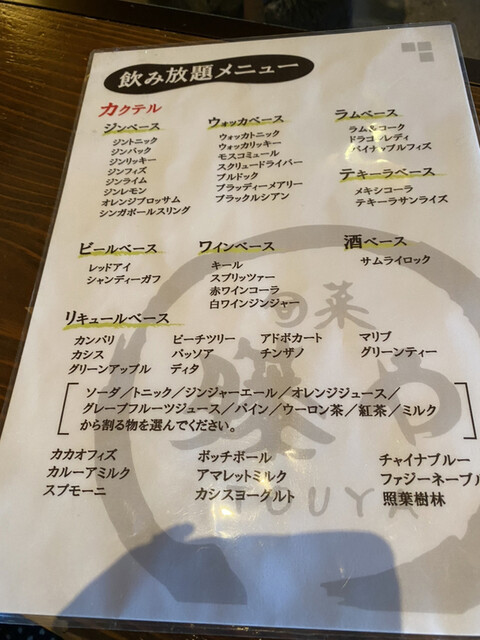 飲み放題メニュー
カクテル
ジンベース
ジントニック
ジンバック
ジンリッキー
ジンフィズ
ジンライム
ジンレモン
オレンジブロッサム
シンガポールスリング
ウォッカベース
ウォッカトニック
ウォッカリッキー
モスコミュール
スクリュードライバー
ブルドック
ブラッディーメアリー
ブラックルシアン
ラムベース
ラム&コーク
ドラゴンレディ
パイナップルフィズ
テキーラベース
メキシコーラ
テキーラサンライズ
ビールベース
レッドアイ
シャンディーガフ
ワインベース
キール
スプリッツァー
赤ワインコーラ
白ワインジンジャー
酒ベース
サムライロック
リキュールベース
カンパリ
カシス
グリーンアップル
ピーチツリー
パッソア
ディタ
アドボカート
チンザノ
マリブ
グリーンティー
ソーダ/トニック/ジンジャーエール/オレンジジュース/
グレープフルーツジュース/パイン/ウーロン茶/紅茶/ミルク
から割る物を選んでください。
カカオフィズ
カルーアミルク
スプモーニ
ボッチボール
アマレットミルク
カシスヨーグルト
チャイナブルー
ファジーネーブル
照葉樹林
旬菜
や
TOUYA